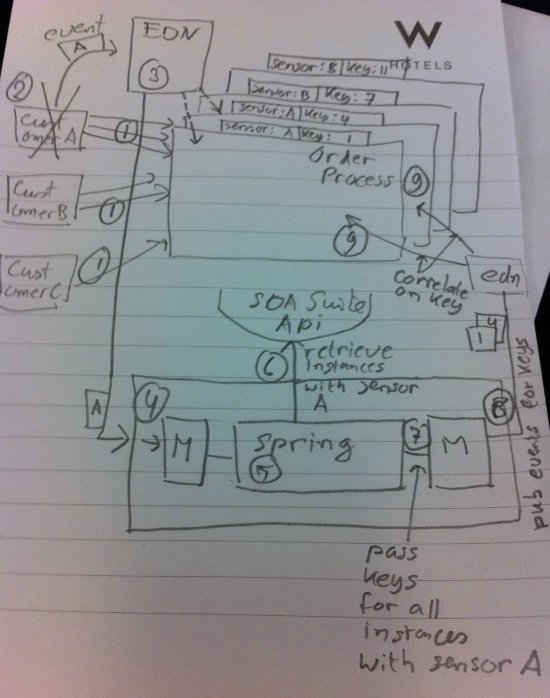 event
A
EDN
3
W
HOTELS
2
Cust
omer A
1
sensor: B key: 11
sensor: B key: 7
sensor: A key: 4
sensor: A key: 1
order
Process
9
Cust
omer B
1
9
Cust
omer C
1
edn
correlate
on key
SOA Suite
Api
4
1
6
retrieve
instances
with sensor
A
A
4
8
M
Spring
5
7
M
pub events for keys
pass
keys
for all
instances
with sensor A